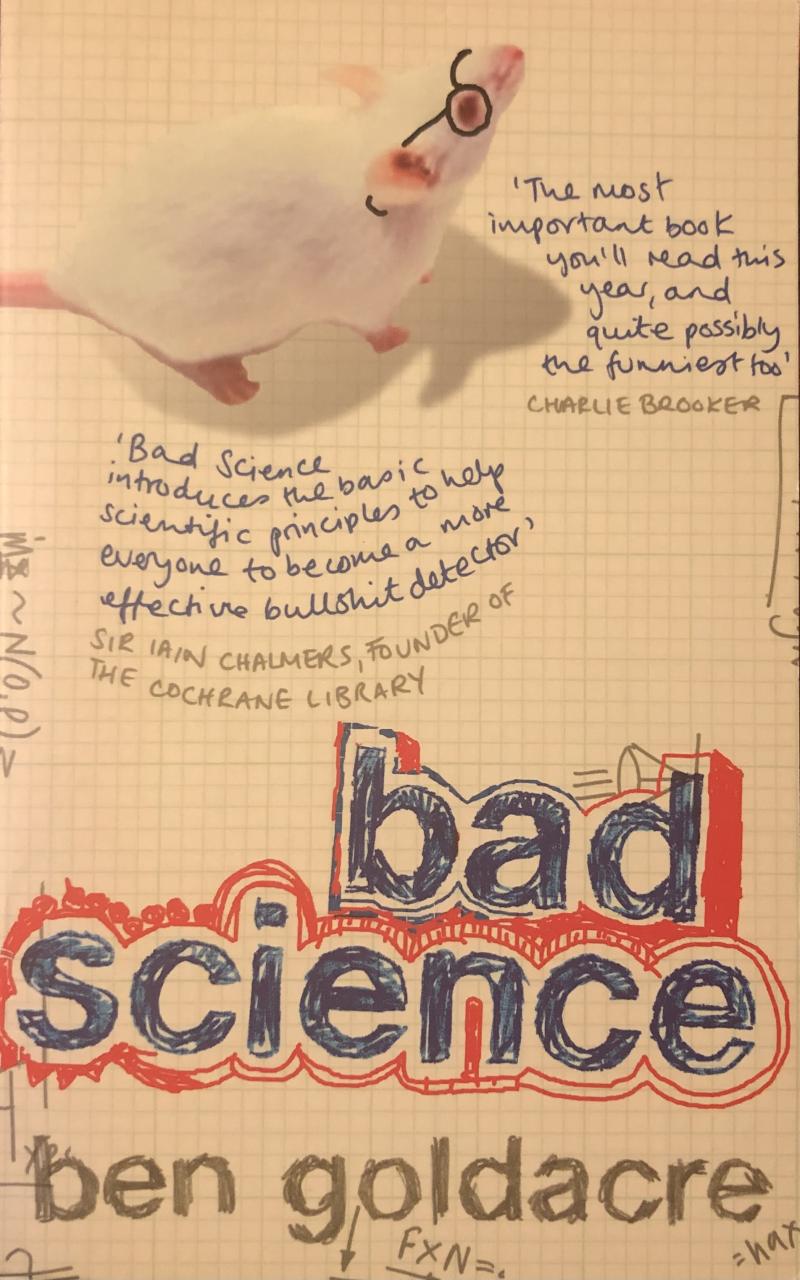 'The most
important book
you'll read this
year, and
quite possibly
the funniest too'
CHARLIE BROOKER
'Bad Science
introduces the basic
scientific principles to help
everyone to become a more
effective bullshit detector'
SIR IAIN CHALMERS, FOUNDER OF
THE COCHRANE LIBRARY
~ N(0,P)
bad
science
ben goldacre
FXN=